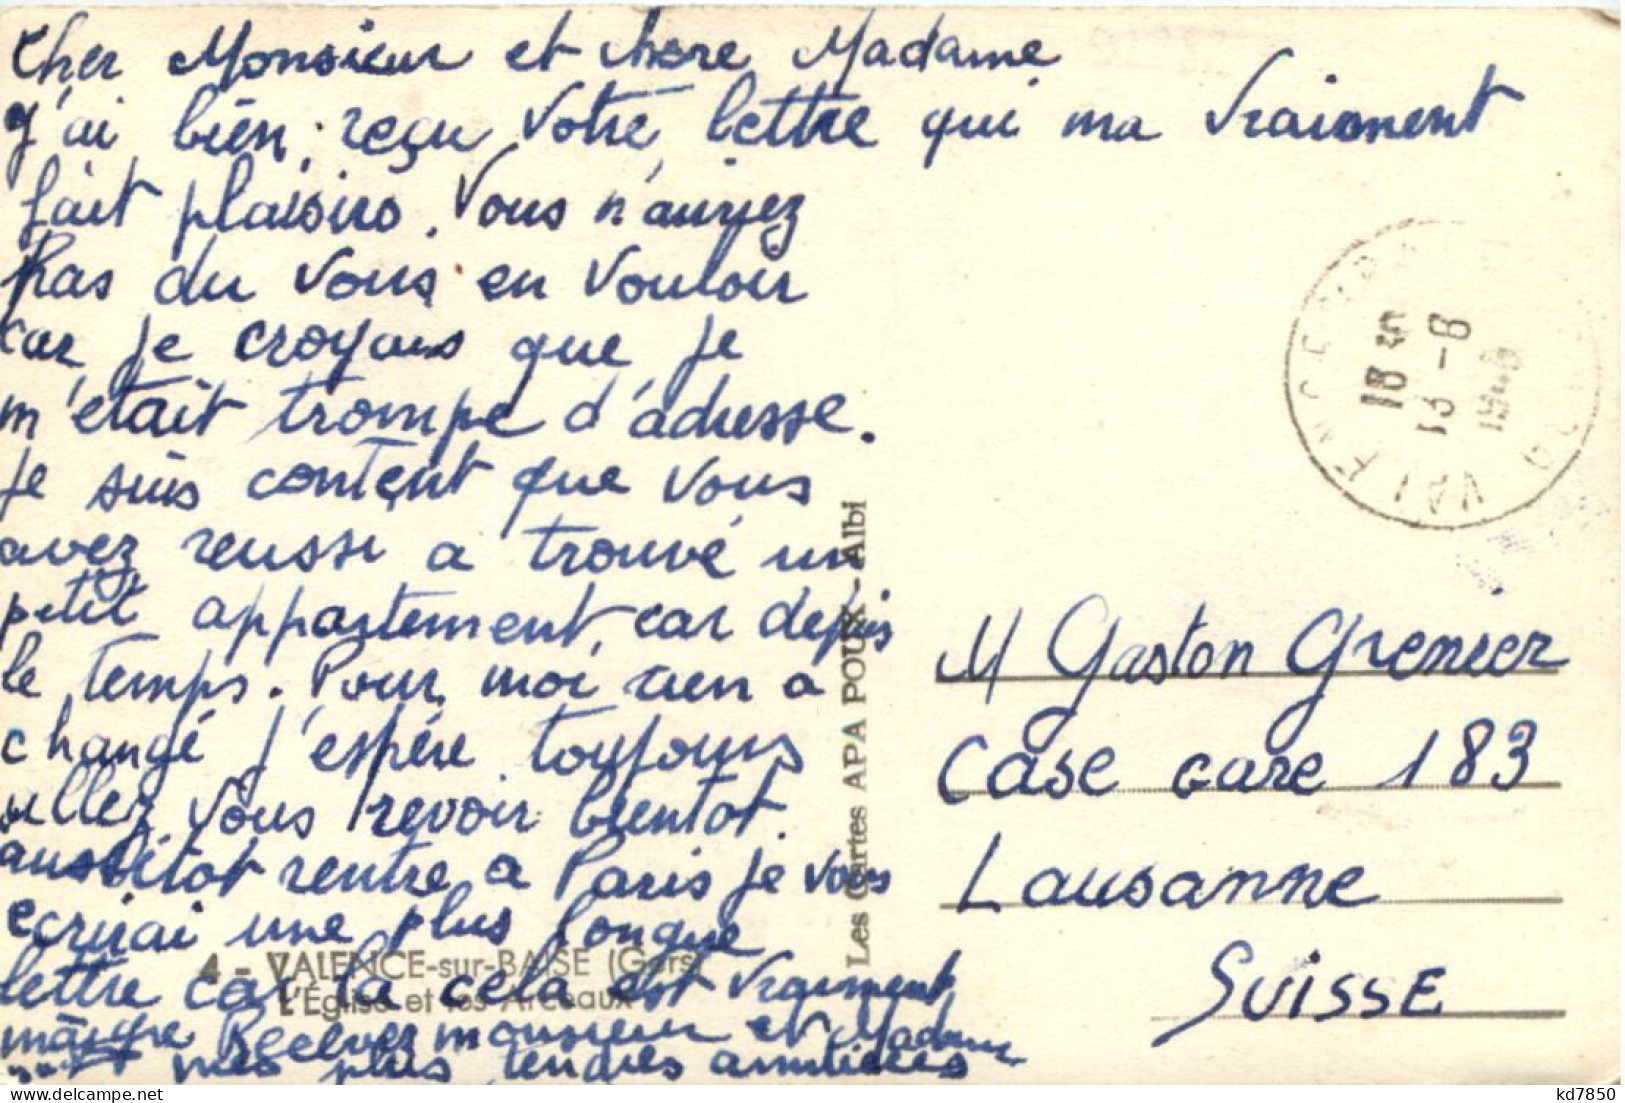 Cher Monsieur et chere Madame
J'ai bien reçu votre lettre qui ma vraiment
fait plaisirs. Vous n'auriez
pas du vous en vouloir
car je croyais que je
m'etait trompe d'adresse.
Je suis content que vous
avez reussi a trouvé un
petit appartement car depuis
le temps. Pour moi rien a
changé j'espère toujours
allez vous revoir bientot.
aussitot rentre a Paris je vous
ecrirai une plus longue
lettre car la cela est vraiment
maigre Recevez monsieur et Madame
mes plus tendres amitières
4 - VALENCE-sur-BAISE (Gers)
L'Église et les Arceaux
Les Cartes APA POUX - Albi
VALENCE
18 35
13 - 8
M Gaston Grenier
Case Gare 183
Lausanne
SUISSE
kd7850